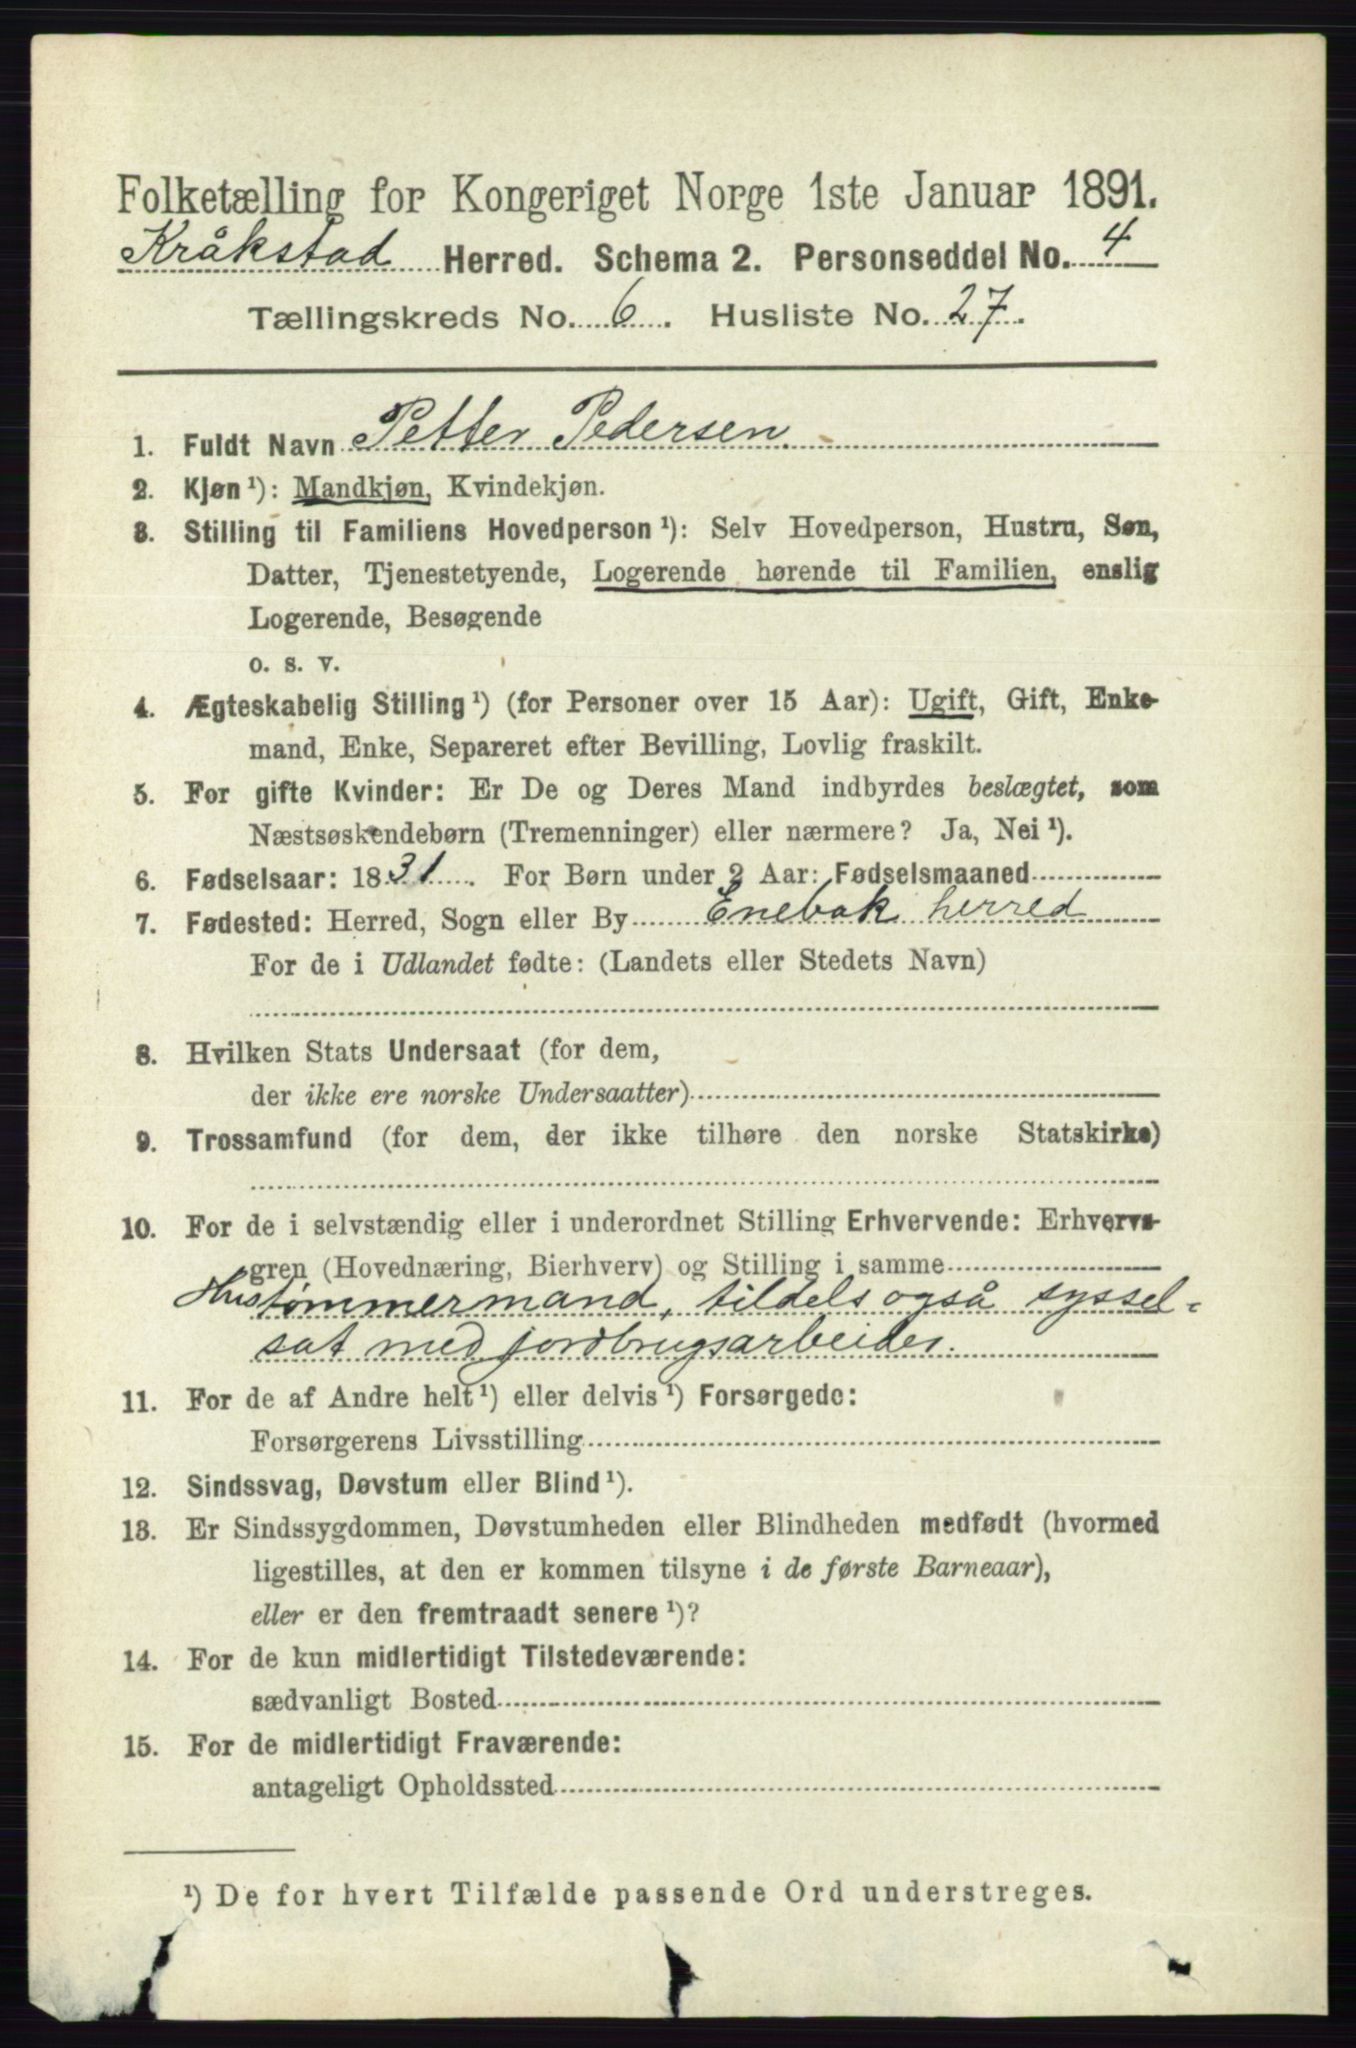 Folketælling for Kongeriget Norge 1ste Januar 1891.
Kråkstad Herred. Schema 2. Personseddel No. 4
Tællingskreds No. 6. Husliste No. 27.
1. Fuldt Navn Petter Pedersen.
2. Kjøn¹): Mandkjøn, Kvindekjøn.
3. Stilling til Familiens Hovedperson¹): Selv Hovedperson, Hustru, Søn,
Datter, Tjenestetyende, Logerende hørende til Familien, enslig
Logerende, Besøgende
o. s. v.
4. Ægteskabelig Stilling¹) (for Personer over 15 Aar): Ugift, Gift, Enke-
mand, Enke, Separeret efter Bevilling, Lovlig fraskilt.
5. For gifte Kvinder: Er De og Deres Mand indbyrdes beslægtet, som
Næstsøskendebørn (Tremenninger) eller nærmere? Ja, Nei¹).
6. Fødselsaar: 1831. For Børn under 2 Aar: Fødselsmaaned
7. Fødested: Herred, Sogn eller By Enebak herred
For de i Udlandet fødte: (Landets eller Stedets Navn)
8. Hvilken Stats Undersaat (for dem,
der ikke ere norske Undersaatter)
9. Trossamfund (for dem, der ikke tilhøre den norske Statskirke)
10. For de i selvstændig eller i underordnet Stilling Erhvervende: Erhvervs-
gren (Hovednæring, Bierhverv) og Stilling i samme
Hustømmermand, tildels også syssel-
sat med jordbrugsarbeider.
11. For de af Andre helt¹) eller delvis¹) Forsørgede:
Forsørgerens Livsstilling
12. Sindssvag, Døvstum eller Blind¹).
13. Er Sindssygdommen, Døvstumheden eller Blindheden medfødt (hvormed
ligestilles, at den er kommen tilsyne i de første Barneaar),
eller er den fremtraadt senere¹)?
14. For de kun midlertidigt Tilstedeværende:
sædvanligt Bosted
15. For de midlertidigt Fraværende:
antageligt Opholdssted
¹) De for hvert Tilfælde passende Ord understreges.